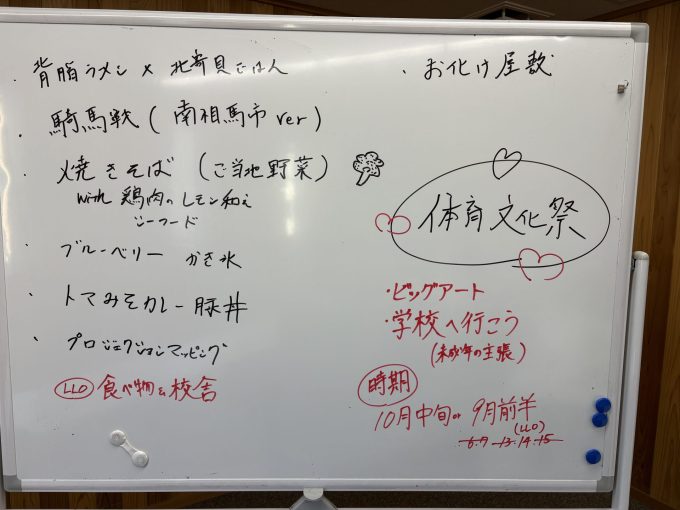 ・背脂ラーメン × 北寄貝ごはん
・騎馬戦（南相馬市 ver）
・焼きそば（ご当地野菜）
with 鶏肉のレモン和え
シーフード
・ブルーベリー かき氷
・トマみそカレー豚丼
・プロジェクションマッピング
LLO 食べ物&校舎
・お化け屋敷
体育文化祭
・ビッグアート
・学校へ行こう
（未成年の主張）
時期
10月中旬or 9月前半
（LLO）
6.7 13.14.15